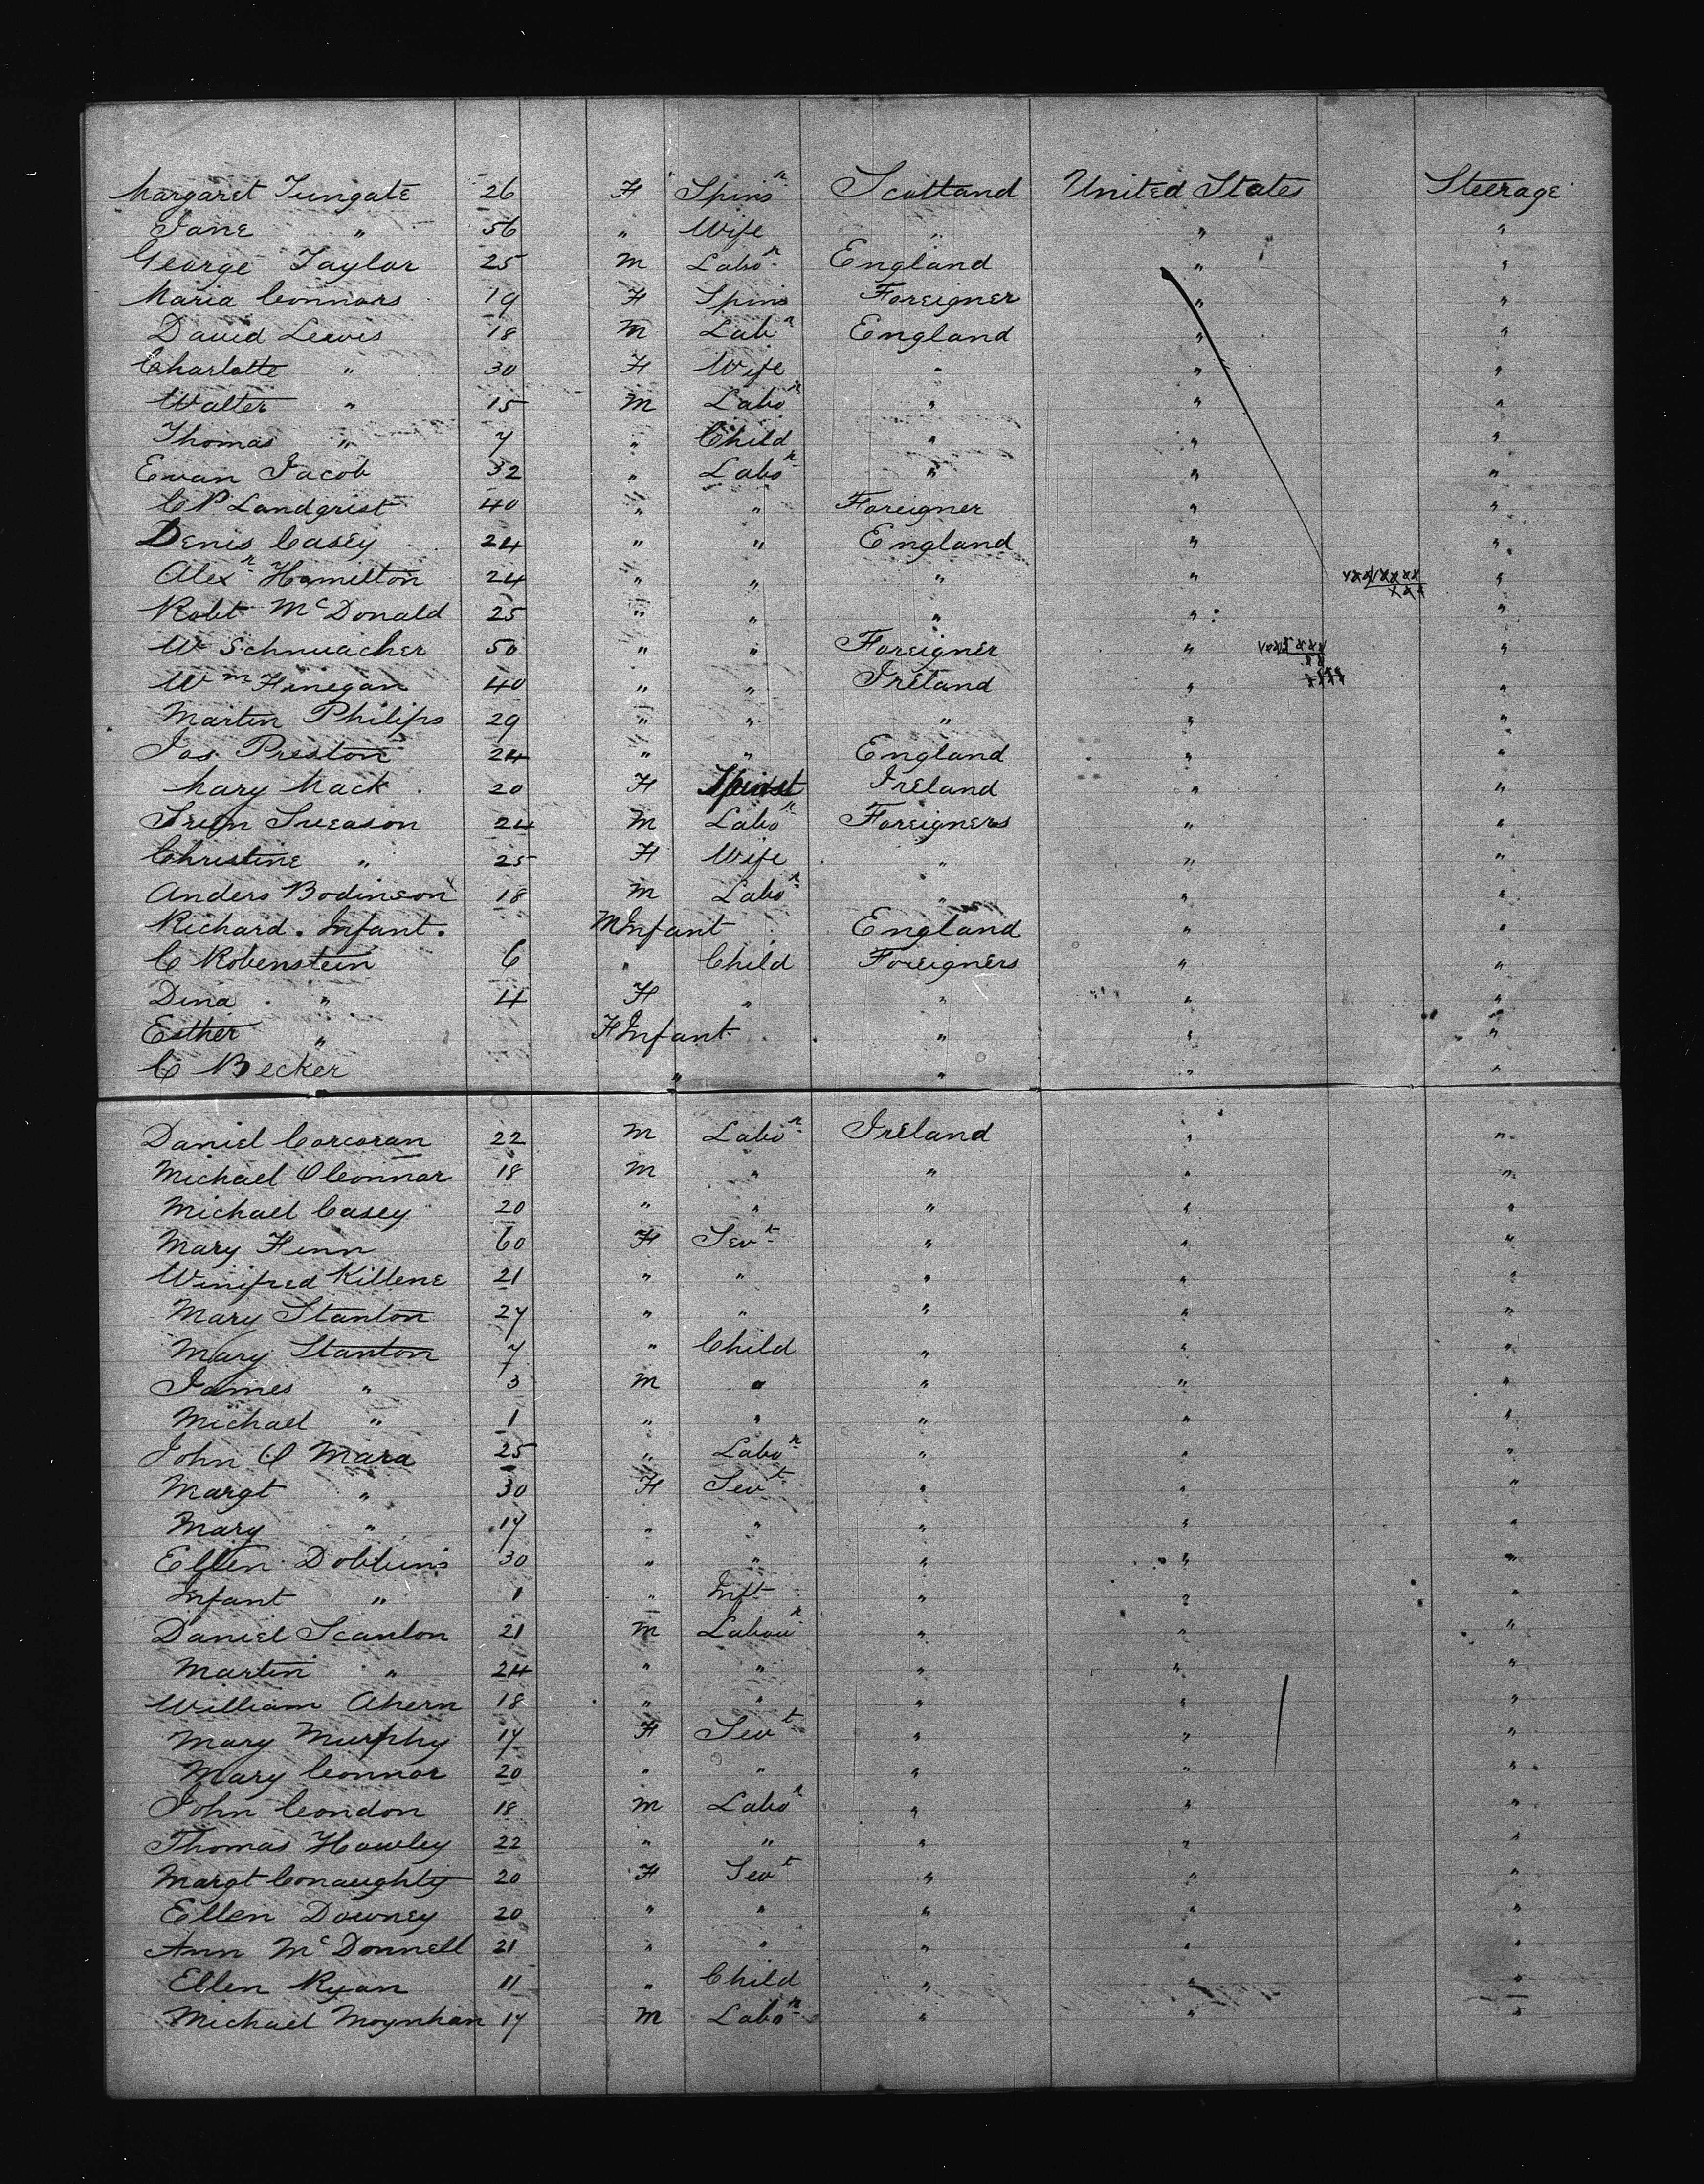 Margaret Tungate 26 F Spinr Scotland United States Steerage
Jane " 56 " Wife " " "
George Taylor 25 M Labor England " "
Maria Connors 19 F Spins Foreigner " "
David Lewis 18 M Labr England " "
Charlotte " 30 F Wife " " "
Walter " 15 M Labor " " "
Thomas " 7 " Child " " "
Evan Jacob 32 " Labor " " "
C P Landgrist 40 " " Foreigner " "
Denis Casey 24 " " England " "
Alexr Hamilton 24 " " " " "
Robt McDonald 25 " " " " "
W Schnuacher 50 " " Foreigner " "
Wm Finegan 40 " " Ireland " "
Martin Philips 29 " " " " "
Jas Preston 24 " " England " "
Mary Mack 20 F Spinst Ireland " "
Sveason 24 M Labor Foreigners " "
Christine " 25 F Wife " " "
Anders Bodinson 18 M Labor " " "
Richard . Infant . M Infant England " "
C Robenstein 6 " Child Foreigners " "
Dina " 4 F " " " "
Esther " F Infant " " "
C Becker " " " "
Daniel Corcoran 22 M Labor Ireland " "
Michael O Connor 18 M " " " "
Michael Casey 20 " " " " "
Mary Finn 60 F Sevt " " "
Winifred Killene 21 " " " " "
Mary Stanton 27 " " " " "
Mary Stanton 7 " Child " " "
James " 3 M " " " "
Michael " 1 " " " " "
John O Mara 25 " Labor " " "
Margt " 30 F Sevt " " "
Mary " 17 " " " " "
Ellen Dobbins 30 " " " " "
Infant " 1 " Inft " " "
Daniel Scanlon 21 M Labour " " "
Martin " 24 " " " " "
William Ahern 18 " " " " "
Mary Murphy 17 F Sevt " " "
Mary Connor 20 " " " " "
John Condon 18 M Labor " " "
Thomas Hawley 22 " " " " "
Margt Conaughty 20 F Sevt " " "
Ellen Downey 20 " " " " "
Ann McDonnell 21 " " " " "
Ellen Ryan 11 " Child " " "
Michael Moynhan 17 M Labor " " "